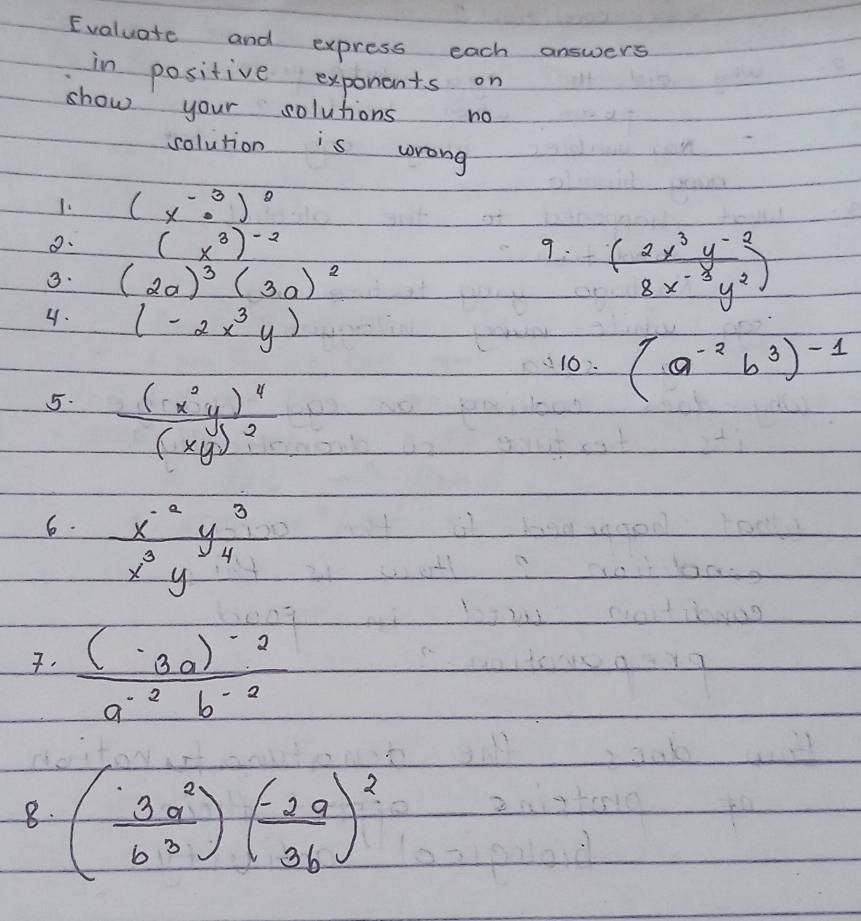 Evaluate and express each answers
in positive exponents on
show your solutions no
solution is wrong
1. (x⁻³)⁰
2. (x³)⁻²
3. (2a)³ (3a)²
4. (-2x³y)
5. (x²y)⁴ / (xy)²
6. x⁻² y³ / x³ y⁴
7. (-3a)⁻² / a⁻² b⁻²
8. (-3a² / b³) (-2a / 3b)²
9. (2x³ y⁻² / 8x⁻³ y²)
10. (a⁻² b³)⁻¹